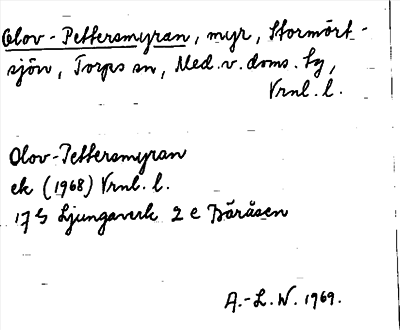 Olov-Pettersmyran, myr, Stormört-
sjön, Torps sn, Med.v.doms. tg,
Vrnl. l.
Olov-Pettersmyran
ek (1968) Vrnl. l.
17 G Ljungaverk 2 e Bäråsen
A.-L. W. 1969.